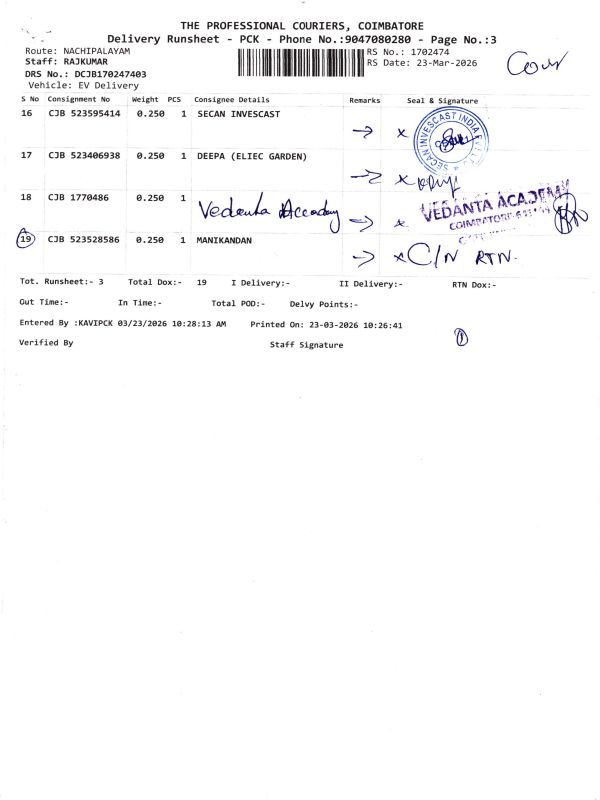 THE PROFESSIONAL COURIERS, COIMBATORE
Delivery Runsheet - PCK - Phone No.:9047080280 - Page No.:3
Route: NACHIPALAYAM
RS No.: 1702474
Staff: RAJKUMAR
RS Date: 23-Mar-2026
DRS No.: DCJB170247403
Vehicle: EV Delivery
S No Consignment No Weight PCS Consignee Details Remarks Seal & Signature
16 CJB 523595414 0.250 1 SECAN INVESCAST
SECAN INVESCAST INDIA
17 CJB 523406938 0.250 1 DEEPA (ELIEC GARDEN)
18 CJB 1770486 0.250 1 Vedanta Accadmy
VEDANTA ACADEMY
COIMBATORE
19 CJB 523528586 0.250 1 MANIKANDAN C/N RTN.
Tot. Runsheet:- 3 Total Dox:- 19 I Delivery:- II Delivery:- RTN Dox:-
Out Time:- In Time:- Total POD:- Delvy Points:-
Entered By :KAVIPCK 03/23/2026 10:28:13 AM Printed On: 23-03-2026 10:26:41
Verified By Staff Signature
1